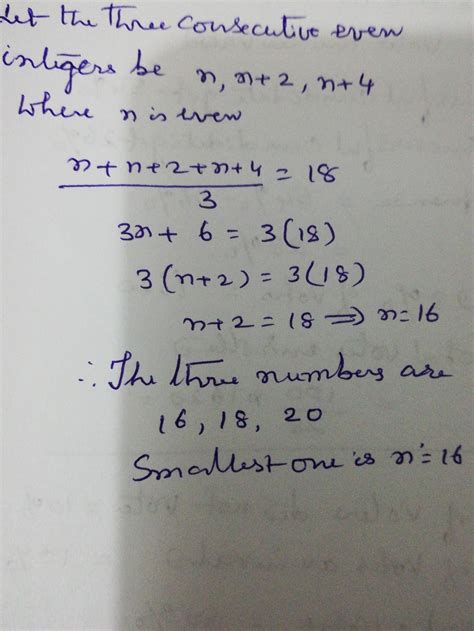 Let the three consecutive even
integers be n, n+2, n+4
Where n is even
n+n+2+n+4 = 18
3
3n+ 6 = 3(18)
3(n+2) = 3(18)
n+2 = 18 ⟹ n=16
∴ The three numbers are
16, 18, 20
Smallest one is n=16